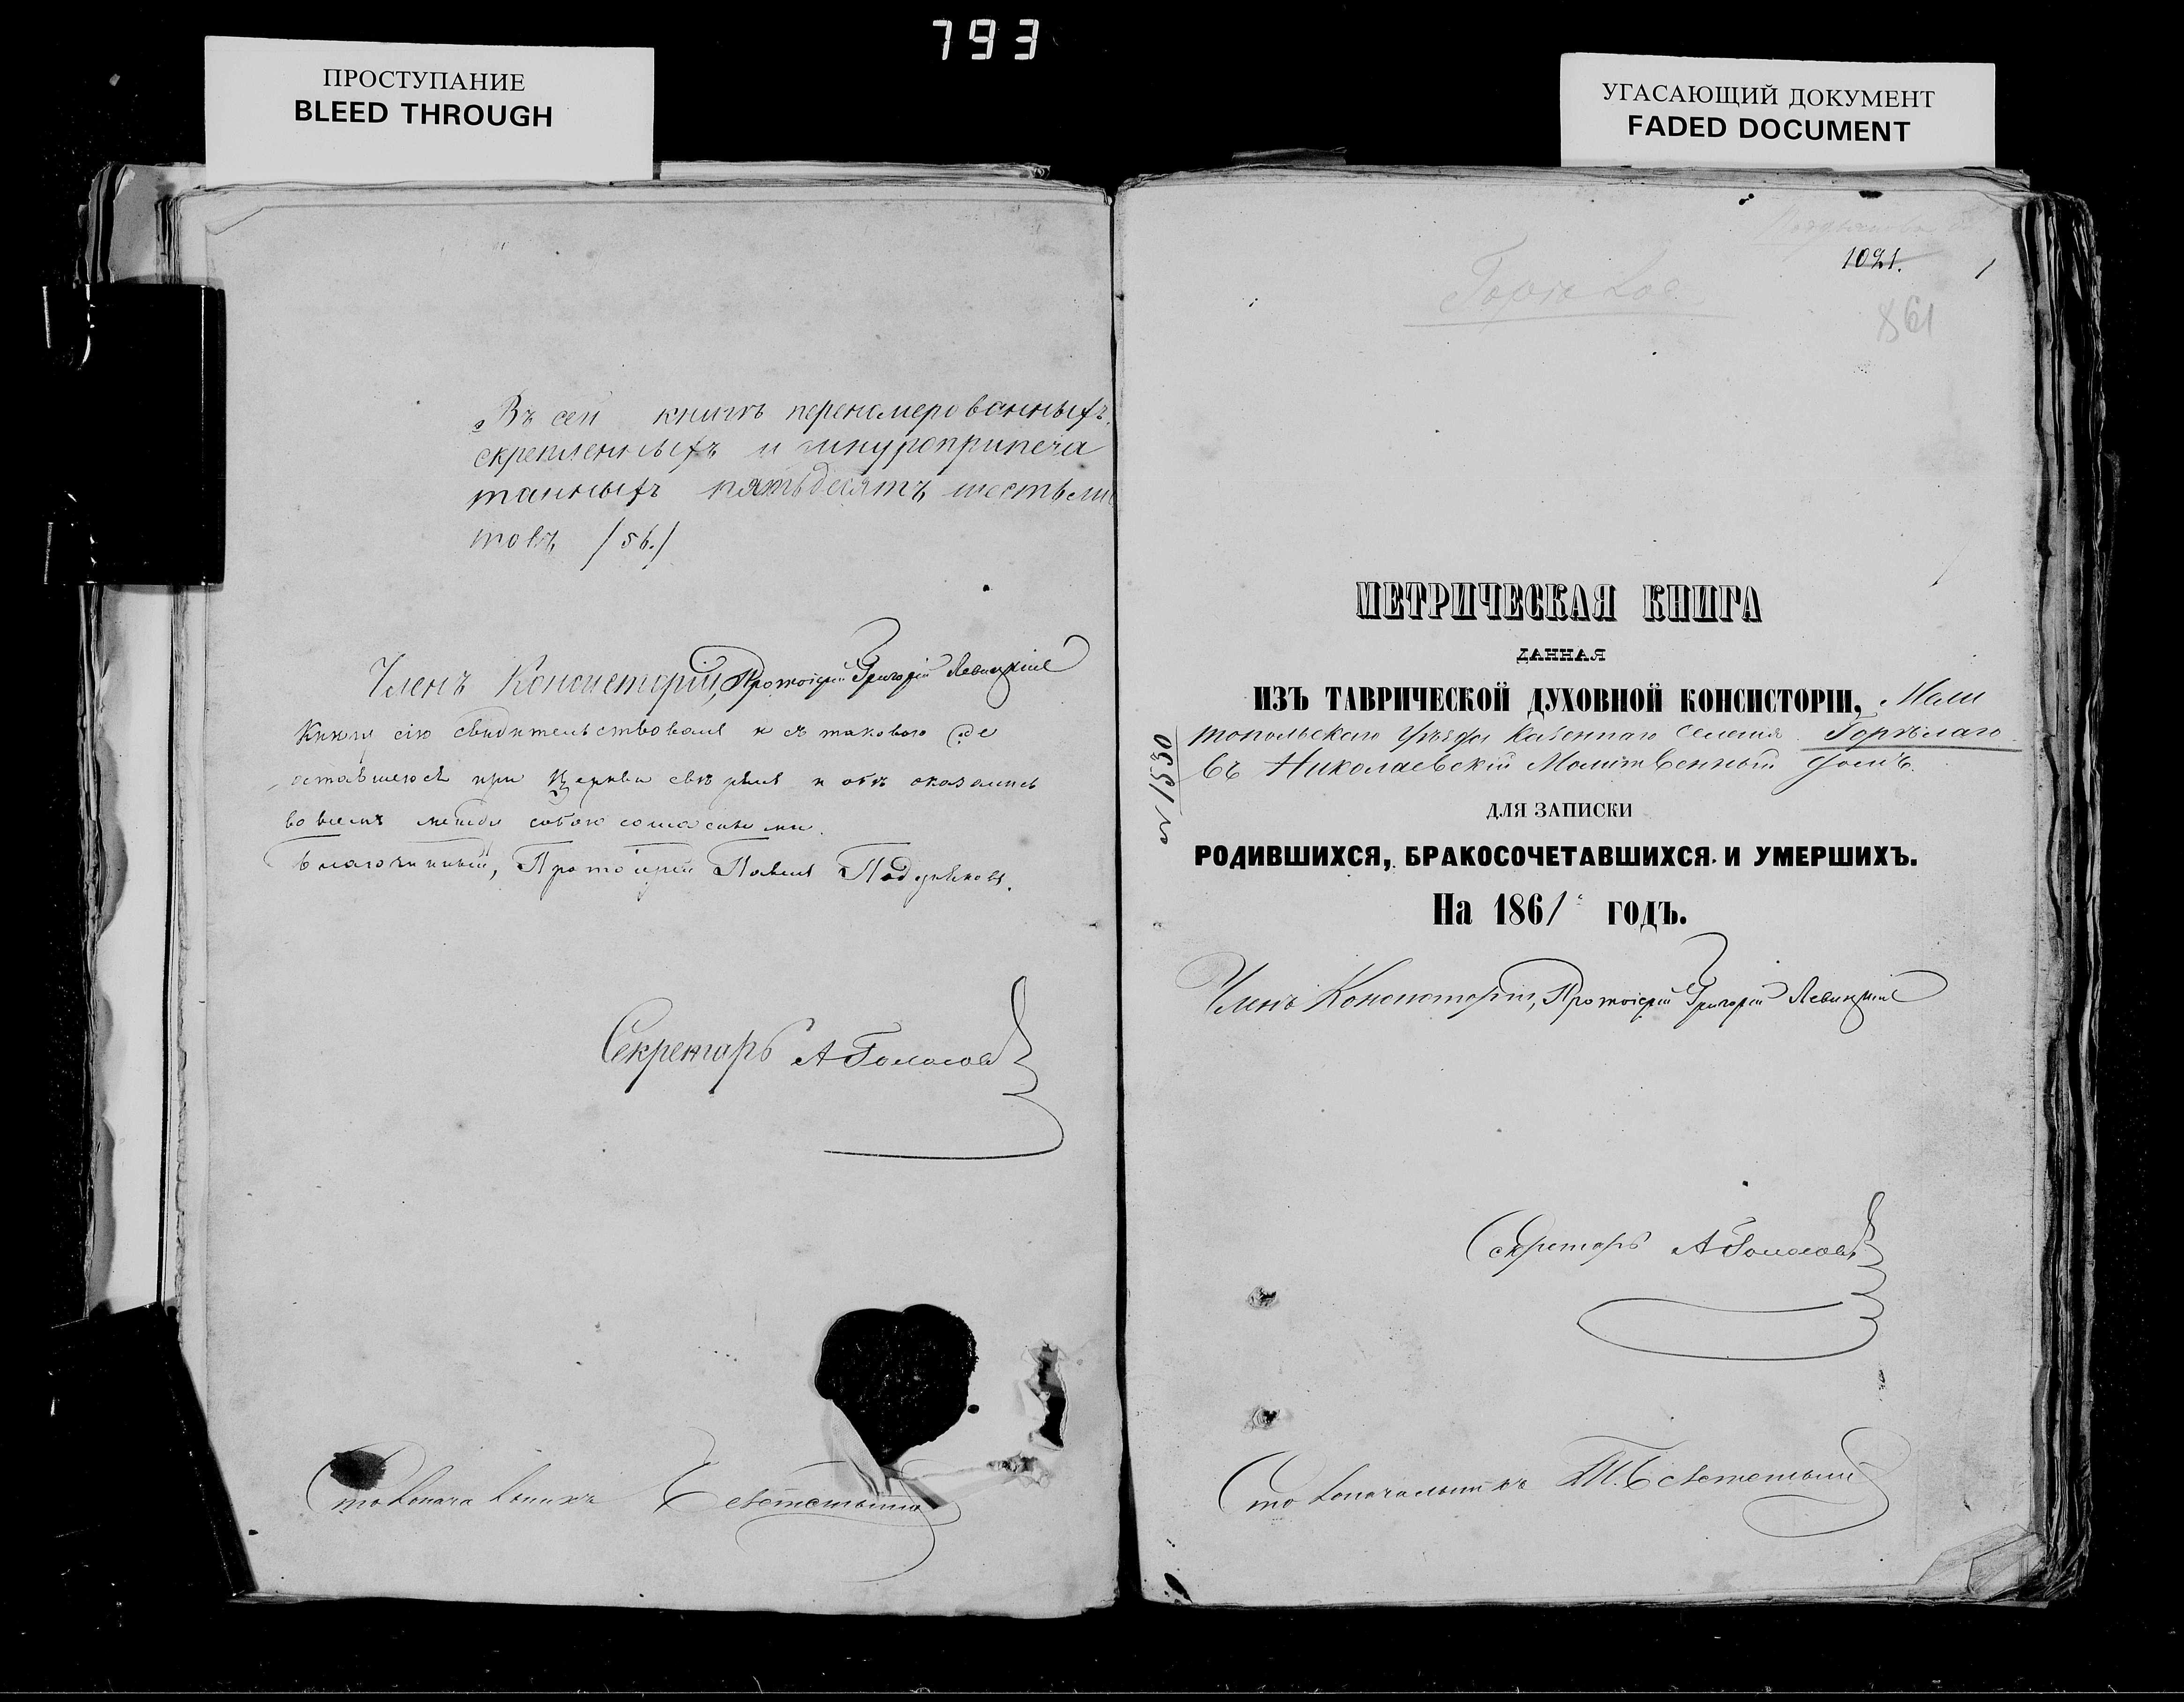 793
ПРОСТУПАНИЕ
BLEED THROUGH
УГАСАЮЩИЙ ДОКУМЕНТ
FADED DOCUMENT
Въ сей книгѣ перенумерованныхъ,
скрепленныхъ и шнуроприпеча
танныхъ пятьдесятъ шесть лис
товъ /56./
Членъ Консисторіи, Протоіерей Григорій Левицкій
Книгу сію свидѣтельствовалъ и съ таковою же
оставшеюся при Церкви свѣрялъ и обѣ оказались
во всемъ между собою согласными.
Благочинный, Протоіерей Павелъ
Секретарь А Голосовъ
Столоначальникъ
1021.
1
861
МЕТРИЧЕСКАЯ КНИГА
ДАННАЯ
ИЗЪ ТАВРИЧЕСКОЙ ДУХОВНОЙ КОНСИСТОРІИ, Мели
топольскаго Уѣзда Казеннаго Селенія Горѣлаго
въ Николаевскій Молитвенный домъ.
ДЛЯ ЗАПИСКИ
РОДИВШИХСЯ, БРАКОСОЧЕТАВШИХСЯ И УМЕРШИХЪ.
На 1861 годъ.
Членъ Консисторіи, Протоіерей Григорій Левицкій
Секретарь А Голосовъ
Столоначальникъ